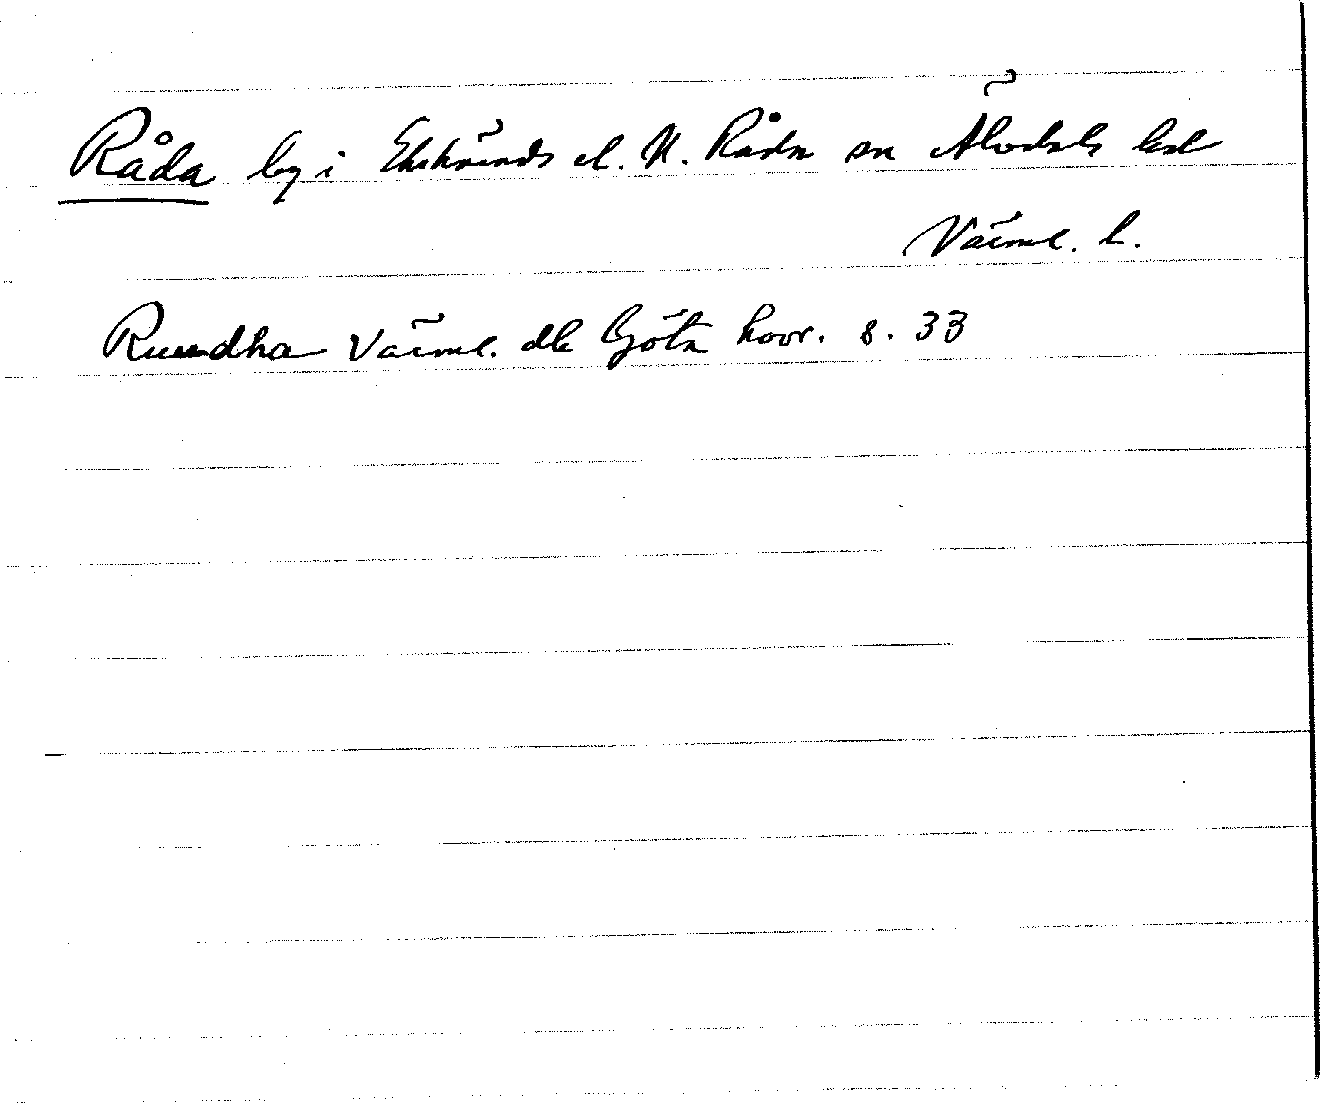 Råda by i Ekshärads el. N. Råda sn Älvdals hd
Värml. l.
Ruudha Värml. dk Göta hovr. s. 33